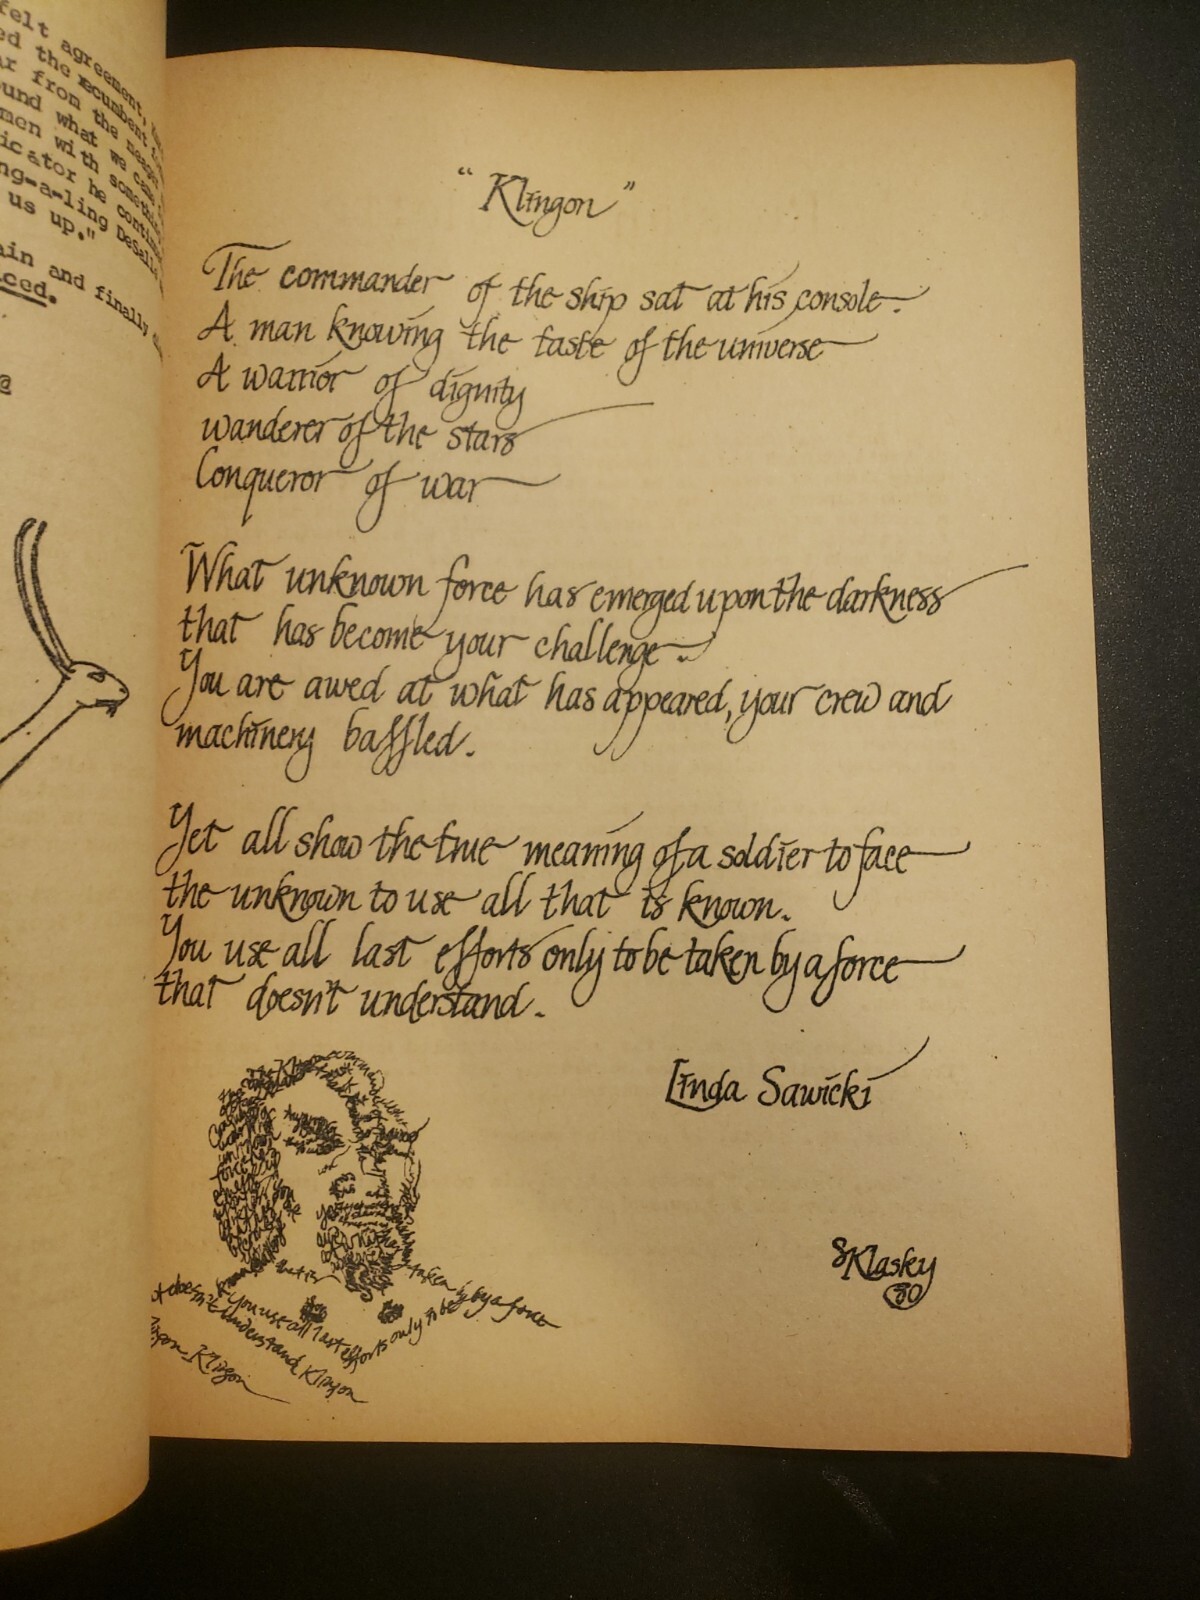 felt agreement,
ed the recumbent
ar from the meager
ound what we came
men with something
icator he continu
ng-a-ling DeSalle
us up."
ain and finally
ced.
@
"Klingon"
The commander of the ship sat at his console.
A man knowing the taste of the universe
A warrior of dignity
wanderer of the stars
Conqueror of war
What unknown force has emerged upon the darkness
that has become your challenge.
You are awed at what has appeared, your crew and
machinery baffled.
Yet all show the true meaning of a soldier to face
the unknown to use all that is known.
You use all last efforts only to be taken by a force
that doesn't understand.
Linda Sawicki
SKlasky
80
taken by a force
You use all last efforts only to be
doesn't understand Klingon
Klingon